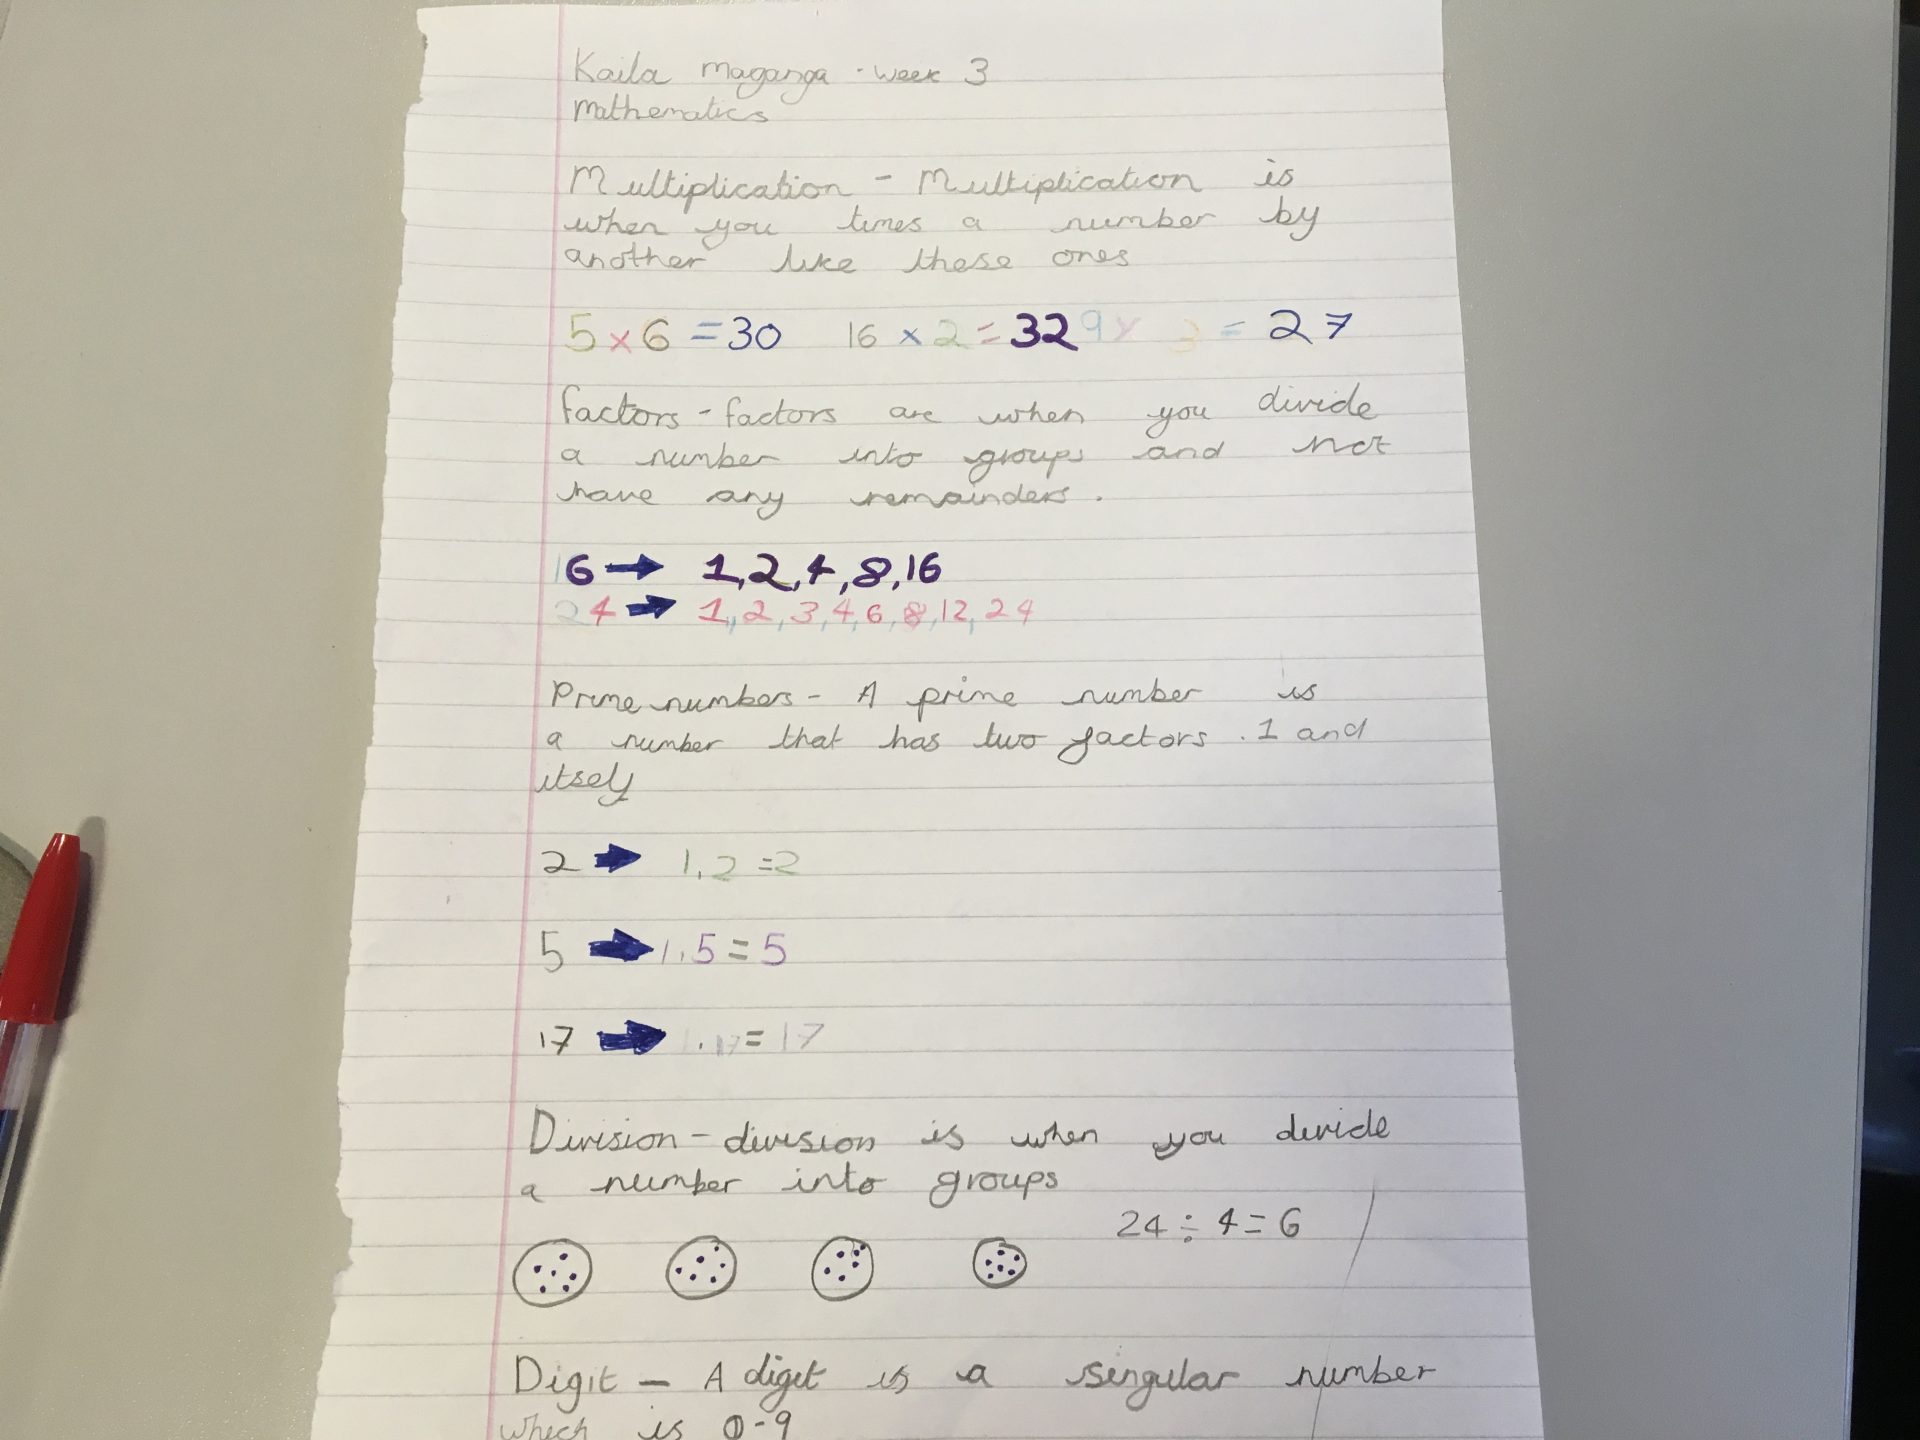 Kaila Maganga - week 3
Mathematics
Multiplication - Multiplication is
when you times a number by
another like these ones
5 x 6 = 30 16 x 2 = 32 9 x 3 = 27
factors - factors are when you divide
a number into groups and not
have any remainders.
16 → 1,2,4,8,16
24 → 1,2,3,4,6,8,12,24
Prime numbers - A prime number is
a number that has two factors. 1 and
itself
2 → 1.2 = 2
5 → 1.5 = 5
17 → 1.17 = 17
Division - division is when you divide
a number into groups
24 ÷ 4 = 6
Digit - A digit is a singular number
which is 0-9